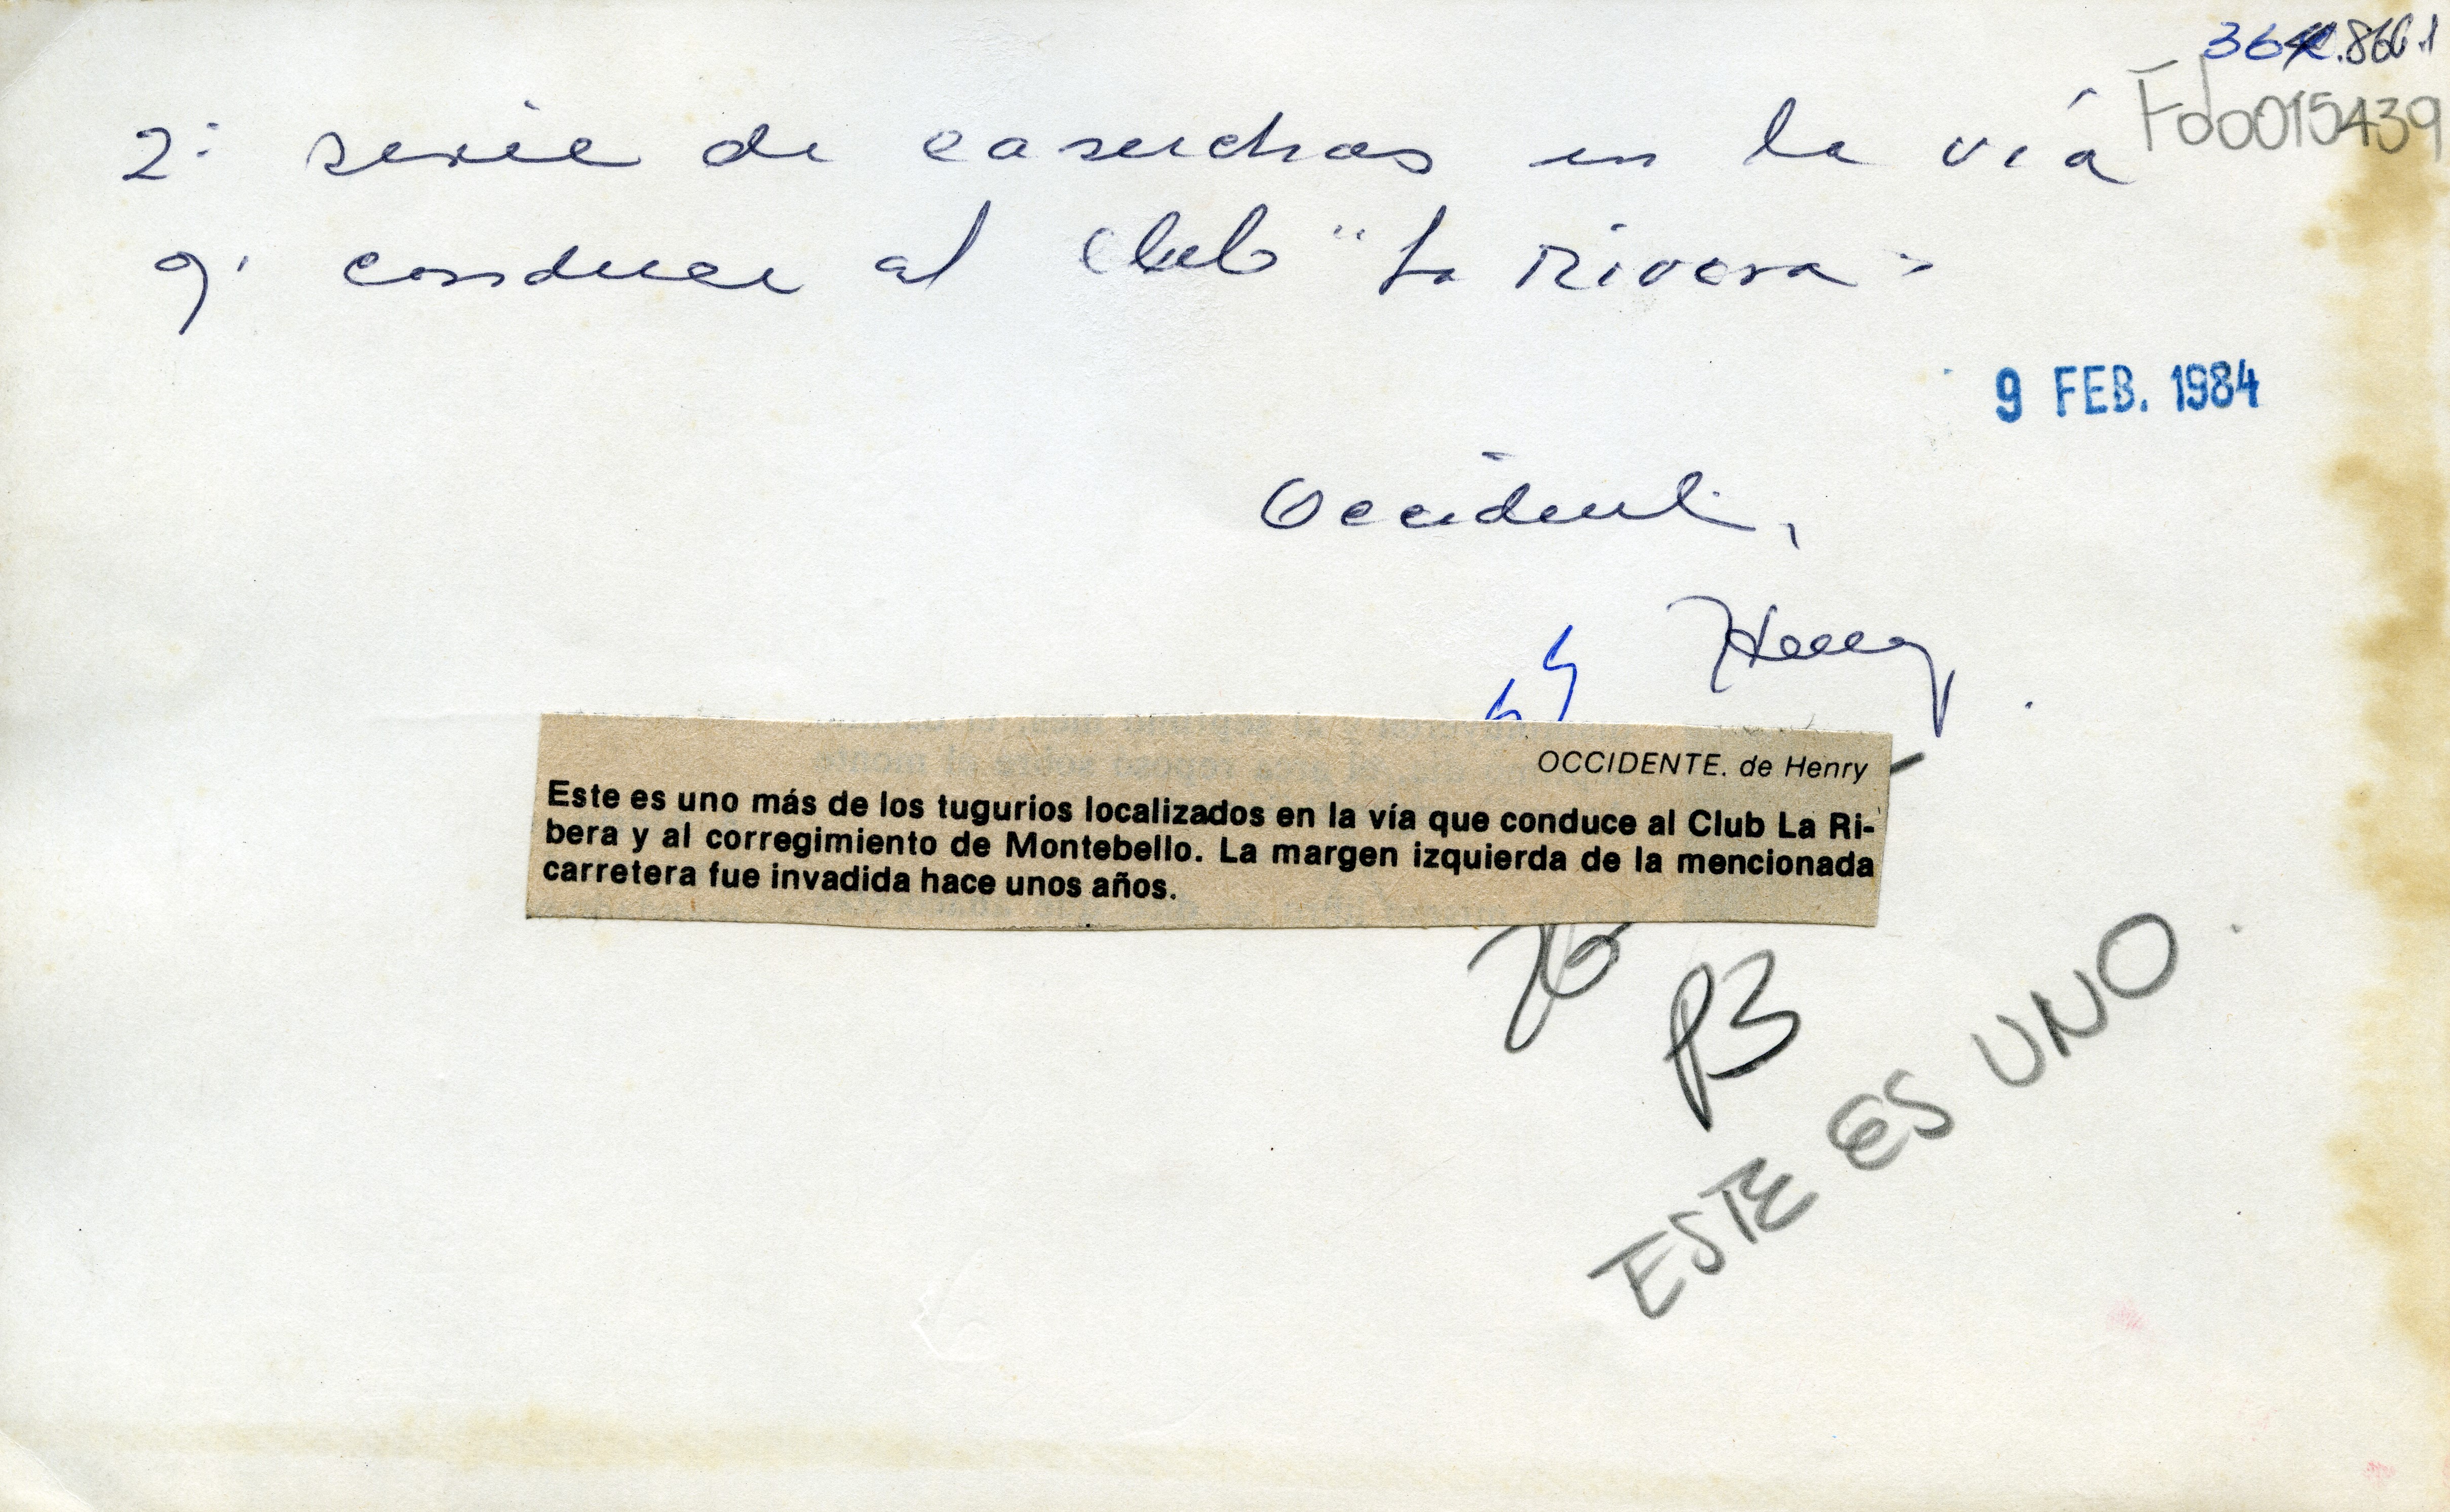 Fdo015439
2: serie de casuchas en la vía
q' conduce al Club "La Rivera"
9 FEB. 1984
Occidente,
Henry
OCCIDENTE. de Henry
Este es uno más de los tugurios localizados en la vía que conduce al Club La Ri-
bera y al corregimiento de Montebello. La margen izquierda de la mencionada
carretera fue invadida hace unos años.
P3
ESTE ES UNO